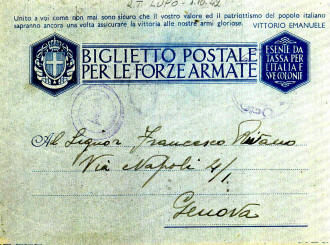 R.T. LUPO - 1.10.42
Unito a voi come non mai sono sicuro che il vostro valore ed il patriottismo del popolo italiano
sapranno ancora una volta assicurare la vittoria alle nostre armi gloriose. VITTORIO EMANUELE
BIGLIETTO POSTALE
PER LE FORZE ARMATE
ESENTE DA
TASSA PER
L'ITALIA E
SVE COLONIE
Al Signor Francesco
Via Napoli 4/1
Genova